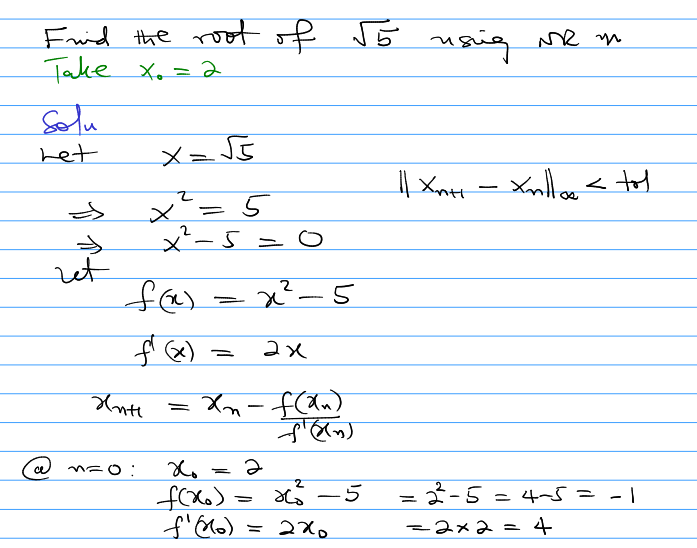 Find the root of √5 using NR m
Take x₀ = 2
Solu
Let x = √5
‖xₙ₊₁ − xₙ‖∞ < tol
⇒ x² = 5
⇒ x² − 5 = 0
Let
f(x) = x² − 5
f'(x) = 2x
xₙ₊₁ = xₙ − f(xₙ)/f'(xₙ)
@ n=0: x₀ = 2
f(x₀) = x₀² − 5 = 2² − 5 = 4 − 5 = −1
f'(x₀) = 2x₀ = 2 × 2 = 4